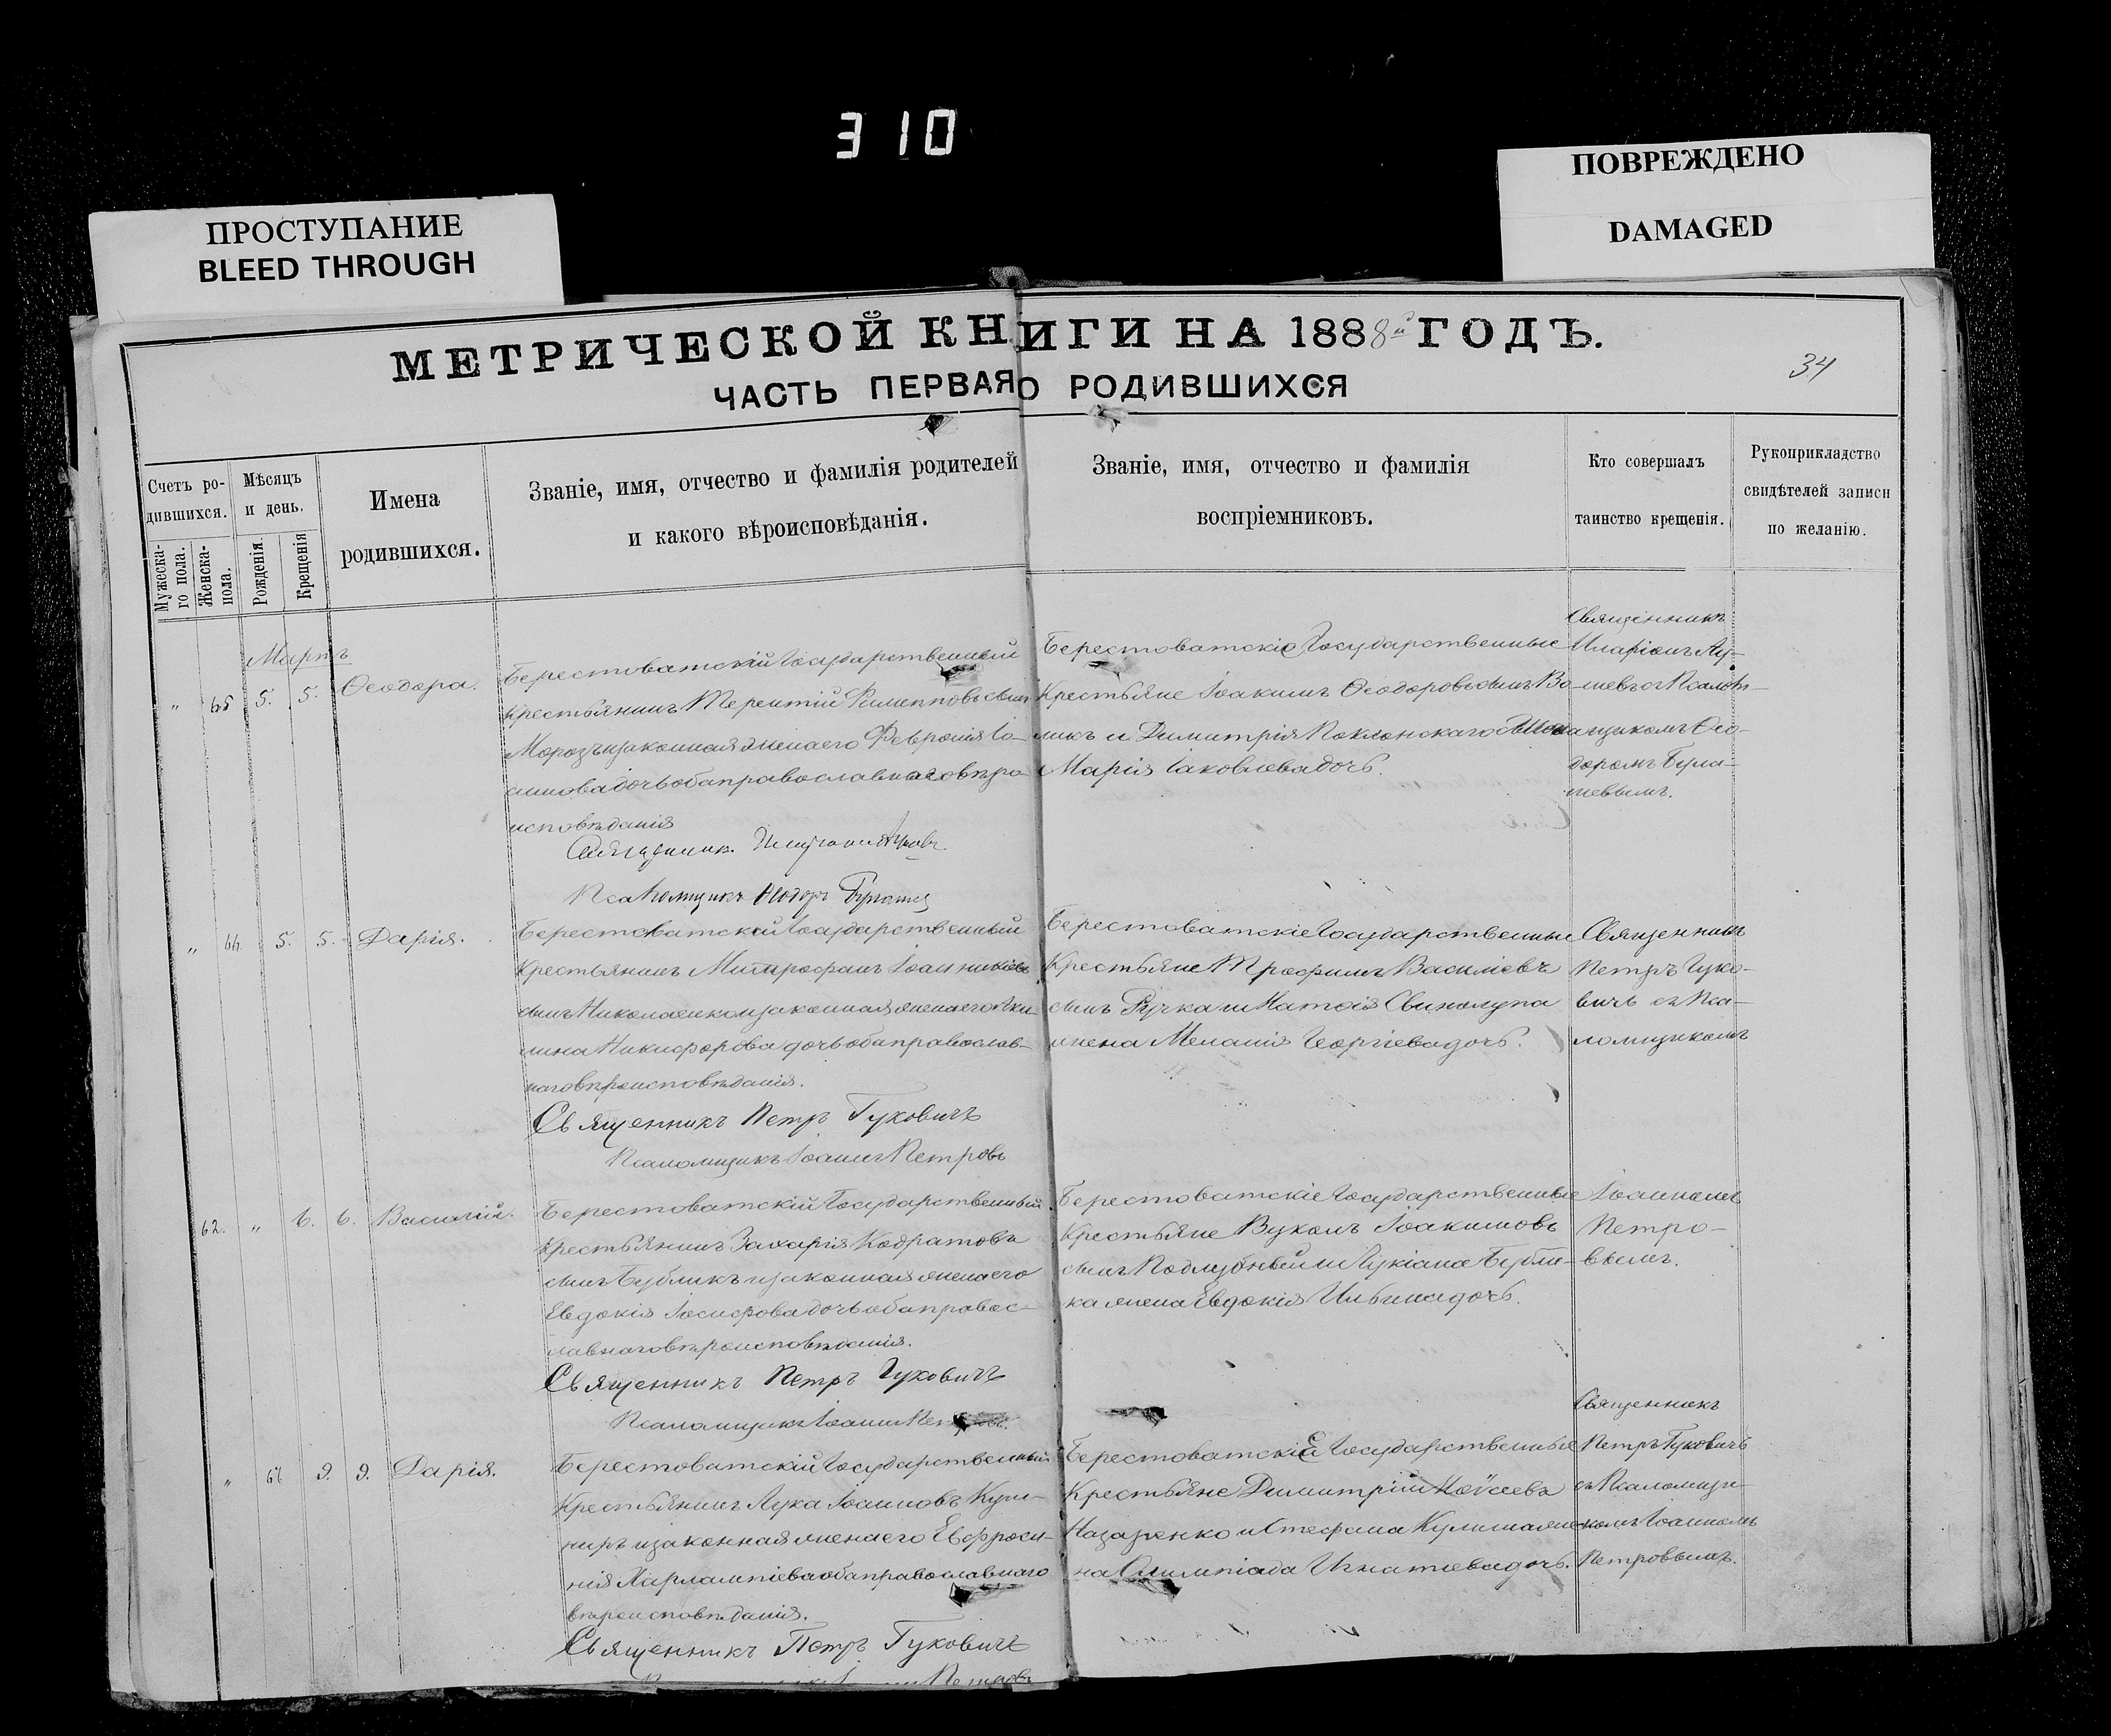 310
ПРОСТУПАНИЕ
BLEED THROUGH
ПОВРЕЖДЕНО
DAMAGED
МЕТРИЧЕСКОЙ КНИГИ НА 1888й ГОДЪ.
ЧАСТЬ ПЕРВАЯ О РОДИВШИХСЯ
34
Счетъ ро-
дившихся.
Мужеска-
го пола.
Женска-
пола.
Мѣсяцъ
и день.
Рожденія.
Крещенія
Имена
родившихся.
Званіе, имя, отчество и фамилія родителей
и какого вѣроисповѣданія.
Званіе, имя, отчество и фамилія
воспріемниковъ.
Кто совершалъ
таинство крещенія.
Рукоприкладство
свидѣтелей записи
по желанію.
Мартъ
" 65 5. 5. Ѳеодора.
Берестоватскій Государственный
Крестьянинъ Терентій Филипповъ сынъ
Морозъ и законная жена его Февронія Іо-
аннова дочь оба православнаго вѣро
исповѣданія
Священникъ
Псаломщикъ
Берестоватскіе Государственные
Крестьяне Іоакимъ Ѳеодоровъ сынъ Во-
ликъ и Димитрія Поклонскаго жена
Марія Іаковлева дочь.
Священникъ
Иларіонъ
съ Псалом-
щикомъ Ѳео-
доромъ
" 66 5. 5. Дарія.
Берестоватскій Государственный
Крестьянинъ Митрофанъ Іоанникіевъ
сынъ Николаенко и законная жена его Аки-
лина Никифорова дочь оба православ-
наго вѣроисповѣданія.
Священникъ Петръ Гуковичъ
Псаломщикъ Іоаннъ Петровъ
Берестоватскіе Государственные
Крестьяне Трофимъ Василіевъ
сынъ Ручка и Матѳія Свинолупа
жена Меланія Георгіева дочь.
Священникъ
Петръ Гуко-
вичъ съ Пса-
ломщикомъ
62. " 6. 6. Василій.
Берестоватскій Государственный
Крестьянинъ Захарія Кодратовъ
сынъ Бубликъ и законная жена его
Евдокія Іосифова дочь оба правос-
лавнаго вѣроисповѣданія.
Священникъ Петръ Гуковичъ
Псаломщикъ Іоаннъ
Берестоватскіе Государственные
Крестьяне Вуколъ Іоакимовъ
сынъ Поддубный и Лукіана Бубли-
ка жена Евдокія Ильина дочь.
Іоанномъ
Петро-
вымъ.
" 67 9. 9. Дарія.
Берестоватскій Государственный
Крестьянинъ Лука Іоанновъ
и законная жена его Евфроси-
нія Харлампіева оба православнаго
вѣроисповѣданія.
Священникъ Петръ Гуковичъ
Петровъ
Берестоватскіе Государственные
Крестьяне Димитрій Моѵсеевъ
Назаренко и Стефана Кулиша же-
на Олимпіада Игнатіева дочь.
Священникъ
Петръ Гуковичъ
съ Псаломщи-
комъ Іоанномъ
Петровымъ.